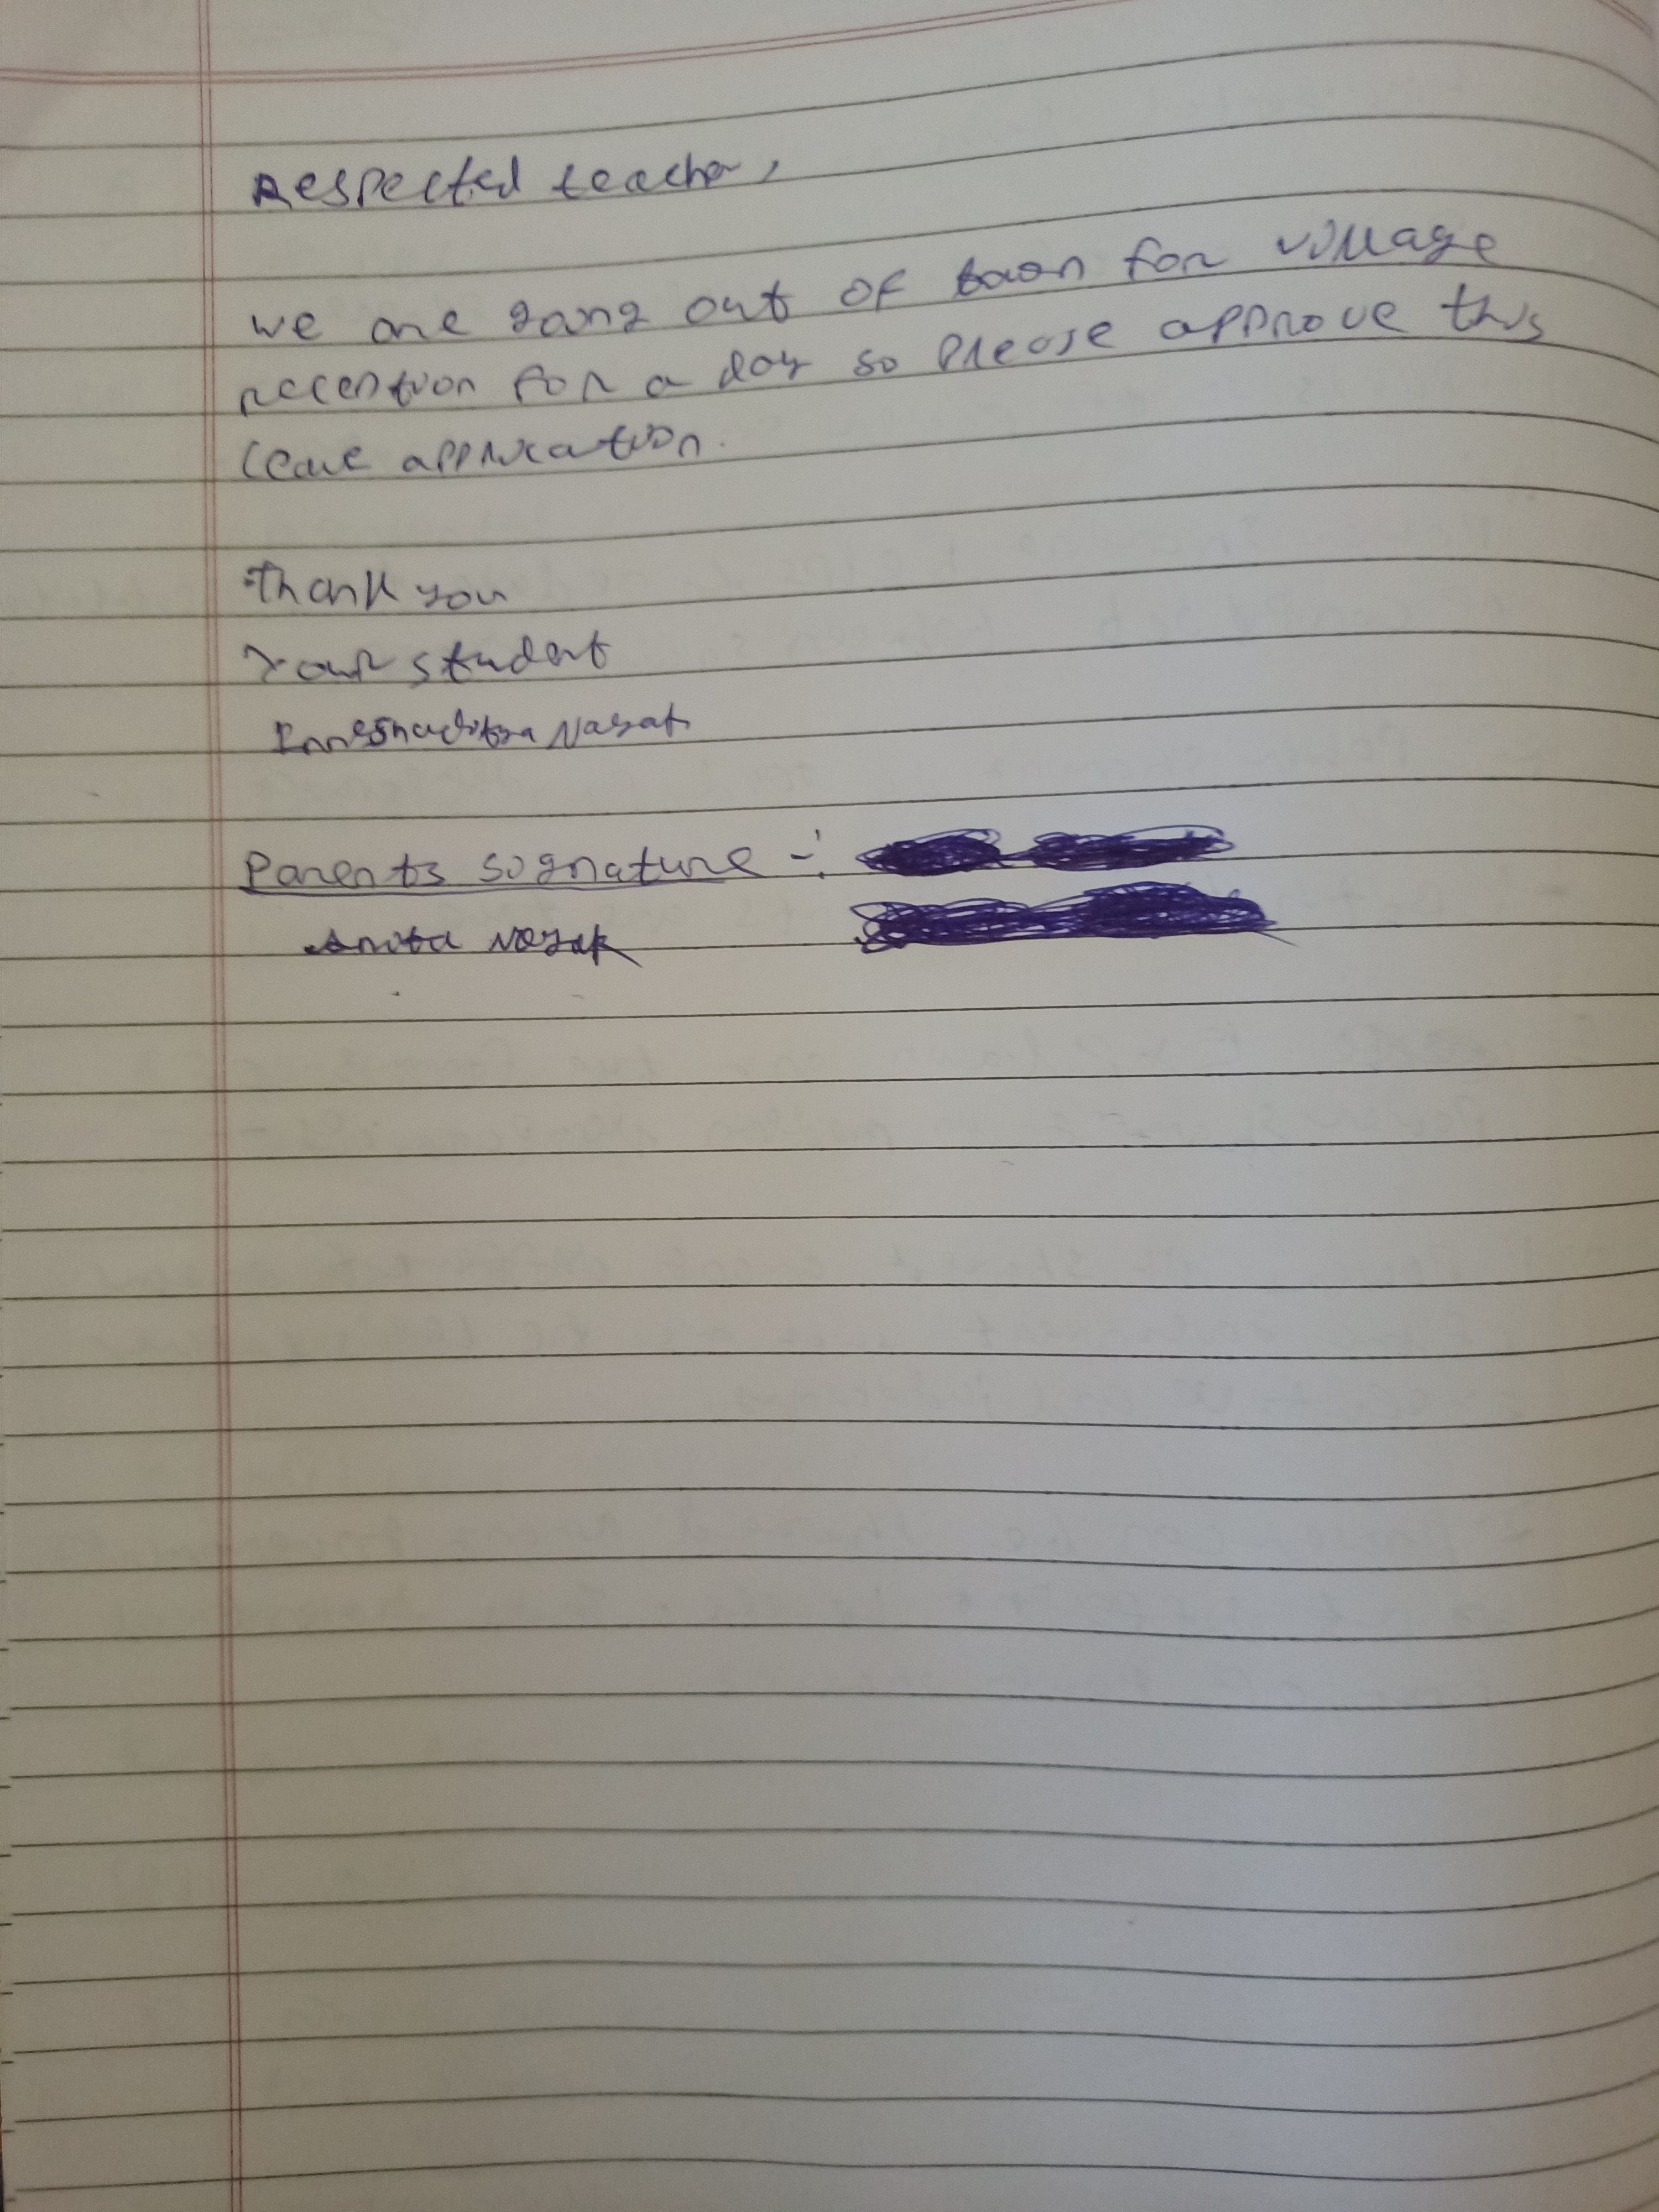 Respected teacher,
we are going out of town for village
recention for a day so please approve this
leave application.
Thank you
Your student
Nayak
Parents signature -:
Anita Nayak